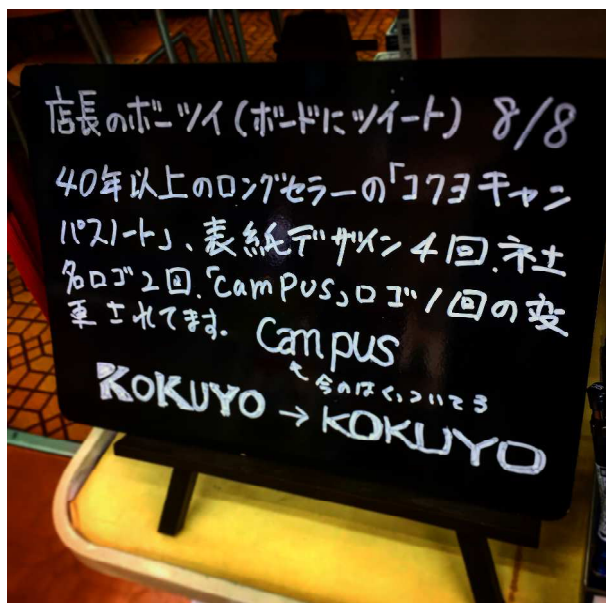 店長のボーツイ(ボードにツイート) 8/8
40年以上のロングセラーの「コクヨキャン
パスノート」、表紙デザイン4回、社
名ロゴ2回、「Campus」ロゴ1回の変
更されてます。
Campus
↖今のはくっついてる
KOKUYO → KOKUYO